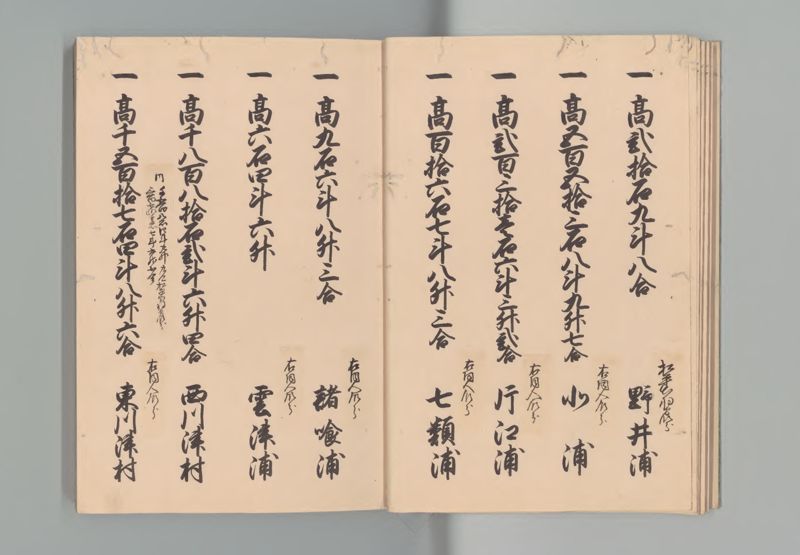 一 高弐拾石九斗八合 野井浦
一 高五百五拾三石八斗九升七合 北浦
右同人領分
一 高弐百三拾壱石六斗三升弐合 片江浦
右同人領分
一 高百拾六石七斗八升三合 七類浦
右同人領分
一 高九石六斗八升三合 諸喰浦
右同人領分
一 高六石四斗六升 雲津浦
右同人領分
一 高千八百八拾石弐斗六升四合 西川津村
一 高千五百拾七石四斗八升六合 東川津村
右同人領分